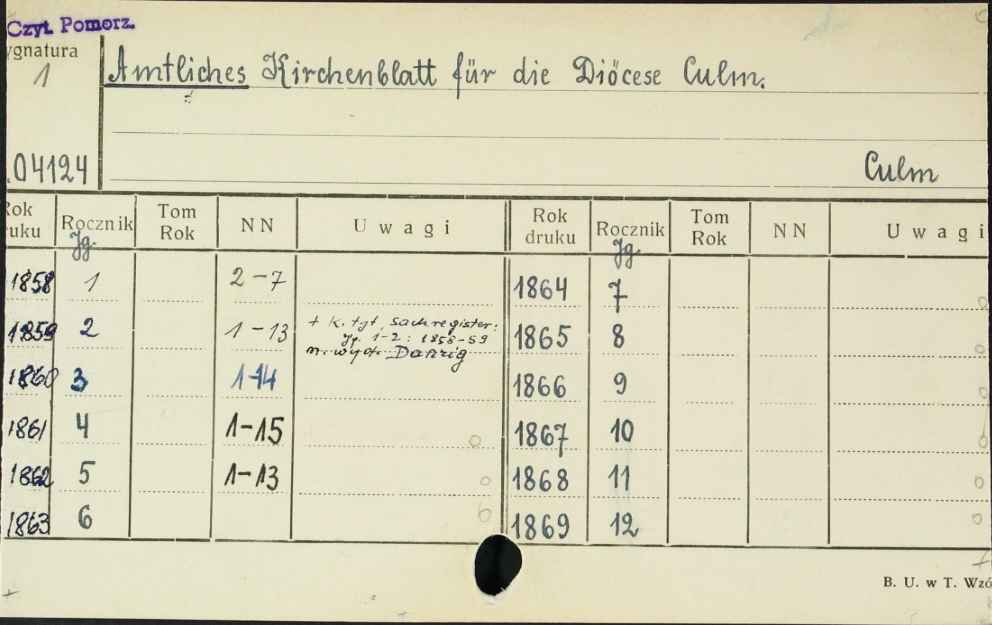 Czyt. Pomorz.
ygnatura
1
Amtliches Kirchenblatt für die Diöcese Culm.
.04124
Culm
Rok druku Rocznik Jg. Tom Rok NN Uwagi Rok druku Rocznik Jg. Tom Rok NN Uwagi
1858 1 2-7 1864 7
1859 2 1-13 + k. tyt. Sachregister: Jg. 1-2: 1858-59 m. wyd. Danzig 1865 8
1860 3 1-14 1866 9
1861 4 1-15 0 1867 10
1862 5 1-13 0 1868 11 0
1863 6 0 1869 12 0
B. U. w T. Wzó